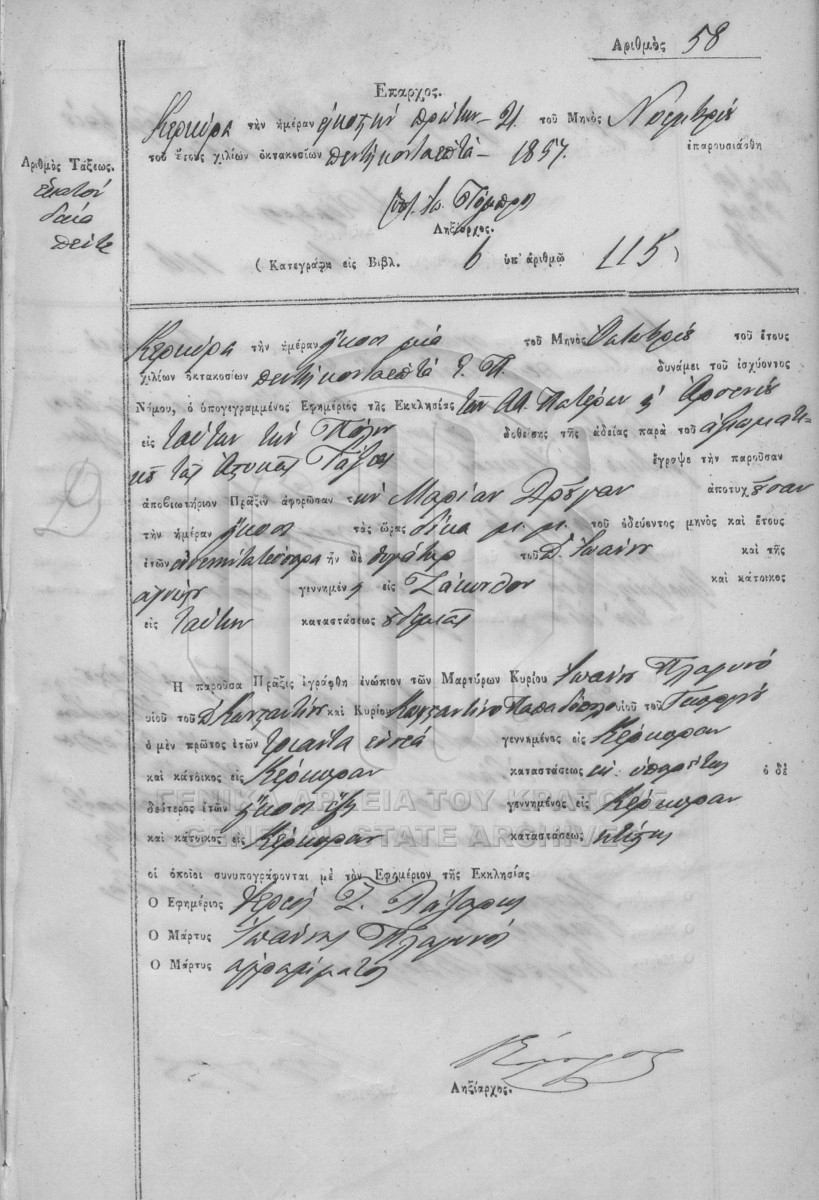 Αριθμὸς 58
Επαρχος.
Κερκύρα τὴν ἡμέραν εἰκοστὴν πρώτην 21 τοῦ Μηνὸς Νοεμβρίου
τοῦ ἔτους χιλίων ὀκτακοσίων πεντήκοντα επτὰ 1857. ἐπαρουσιάσθη
Ληξίαρχος.
( Κατεγράφη εἰς Βιβλ. 6 ὑπ' ἀριθμῷ 115 )
Ἀριθμὸς Τάξεως.
εκατον
δεκα
πεντε
Κερκύρα τὴν ἡμέραν εἴκοσι μία τοῦ Μηνὸς Οκτωβρίου τοῦ ἔτους
χιλίων ὀκτακοσίων πεντήκοντα επτὰ Ε. Π. δυνάμει τοῦ ἰσχύοντος
Νόμου, ὁ ὑπογεγραμμένος Ἐφημέριος τῆς Ἐκκλησίας των Αγ. Πατέρων Αρσενίου
εἰς ταύτην τὴν Πόλιν δοθείσης τῆς ἀδείας παρὰ τοῦ αξιωματι-
κοῦ τῆς Τάξεως ἔγραψε τὴν παροῦσαν
ἀποβιωτήριον Πρᾶξιν ἀφορῶσαν τὴν Μαρίαν ἀποτυχοῦσαν
τὴν ἡμέραν εἴκοσι τὰς ὥρας δέκα μ. μ. τοῦ ὁδεύοντος μηνὸς καὶ ἔτους
ἐτῶν ἦν δὲ θυγάτηρ τοῦ Ἰωάννου καὶ τῆς
γεννημένη εἰς Ζάκυνθον καὶ κάτοικος
εἰς ταύτην καταστάσεως οὐδεμιᾶς
Ἡ παροῦσα Πρᾶξις ἐγράφθη ἐνώπιον τῶν Μαρτύρων Κυρίου Ἰωάννου
υἱοῦ τοῦ Κωνσταντίνου καὶ Κυρίου Κωνσταντίνου Παπαδόπουλου υἱοῦ τοῦ Γεωργίου
ὁ μὲν πρῶτος ἐτῶν τριαντα εννεα γεννημένος εἰς Κέρκυραν
καὶ κάτοικος εἰς Κέρκυραν καταστάσεως ὁ δὲ
δεύτερος ἐτῶν εἴκοσι ἕξ γεννημένος εἰς Κέρκυραν
καὶ κάτοικος εἰς Κέρκυραν καταστάσεως
οἱ ὁποῖοι συνυπογράφονται μὲ τὸν Ἐφημέριον τῆς Ἐκκλησίας
Ὁ Ἐφημέριος Ἱερεὺς
Ὁ Μάρτυς Ἰωάννης
Ὁ Μάρτυς αγράμματος
Ληξίαρχος.
ΓΕΝΙΚΑ ΑΡΧΕΙΑ ΤΟΥ ΚΡΑΤΟΥΣ
GENERAL STATE ARCHIVES